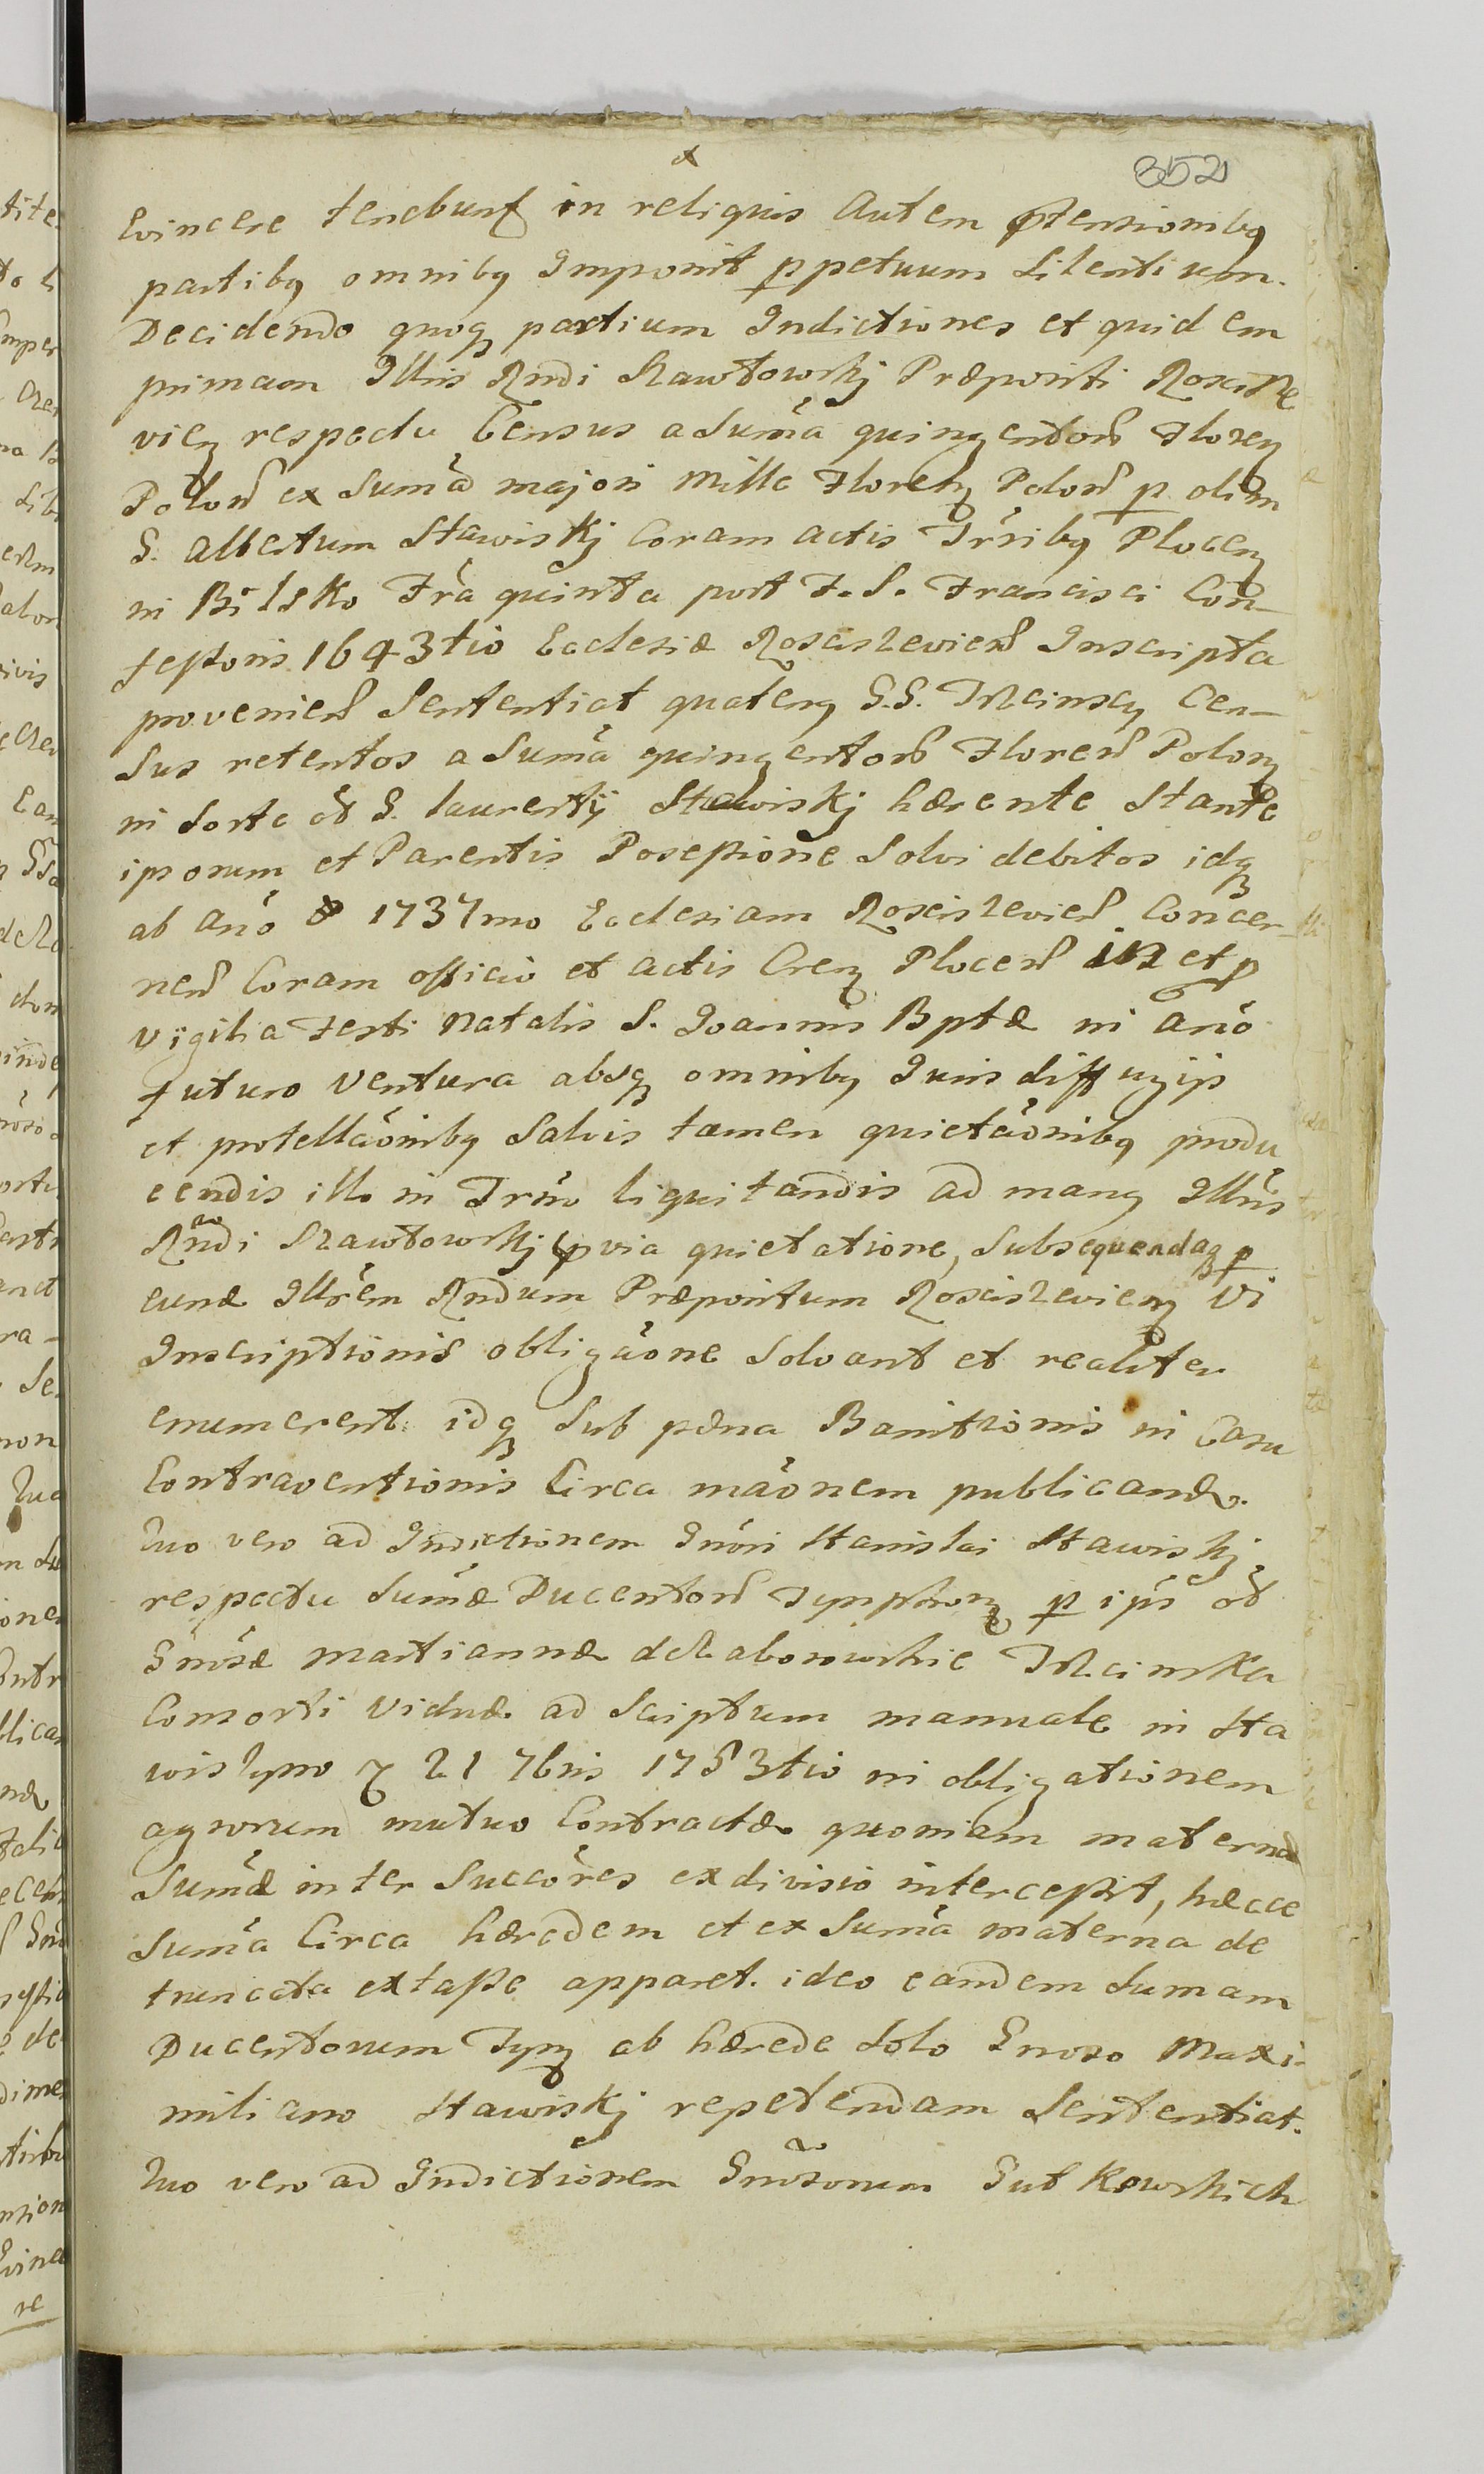 352
Evincere tenebunt in reliquis Autem ptensionibq
partibq omnibq Imponit ppetuum Silentium.
Decidendo quoq partium Indictiones et quidem
primam Illris Rndi Szawłowskj Præpositi Rosciszeviens
respectu Census a Suma quingentoru Floren
Polon ex Suma majori mille Floren Polon p olim
G. Albertum Stawiskj Coram actis Trribq Plocen
in Bilsko Fra quinta post F. S. Francisci Con-
fessoris 1643tio Ecclesiæ Roscisevien Inscripta
provenien Sententiat quatenq G.G. Mcinscy Cen-
sus retentos a Suma quingentoru Floren Polon
in Sorte od G. Laurentij Stawiskj hærente Stante
ipsorum et Parentis Possessione Solvi debitos idq
ab Ano 1737mo Ecclesiam Roscisevien Concer-
nen Coram officio et actis Cren Plocen in et p
vigilia Festi Natalis S. Joannis Bptæ in ano
futuro Ventura absq omnibq Juris diffugijs
et protellaonibq Salvis tamen quietaonibq produ
cendis illo in Trno liquitandis ad manq Illris
Rndi Szawłowskj pvia quietatione, subsequendaq p
eund Illrem Rndum Præpositum Rosciszevien Vi
Inscriptionis obligaone Solvant et realiter
enumerent idq Sub pæna Banitionis in Casu
Contraventionis Circa maonem publicandæ.
Quo vero ad Indictionem Gnosi Stanislai Stawiskj
respectu Sumæ Ducentoru Tynphon p ips od
Gnosæ Martiannæ de Zaborowskie Mcinska
Consorti Viduæ ad Scriptum manuale in Sta
wiszyno 21 7bris 1753tio in obligationem
agrorum mutuo Contractæ quoniam materna
Sumæ inter Succores exdivisio intercessit, hæcce
Suma Circa hæredem et ex Suma materna de
truncata extasse apparet. ideo eandem Sumam
Ducentorum Tyn ab hærede Solo Gnoso Maxi-
miliano Stawiskj repetendam Sententiat.
Quo vero ad Indictionem Gnosorum Gutkowskich